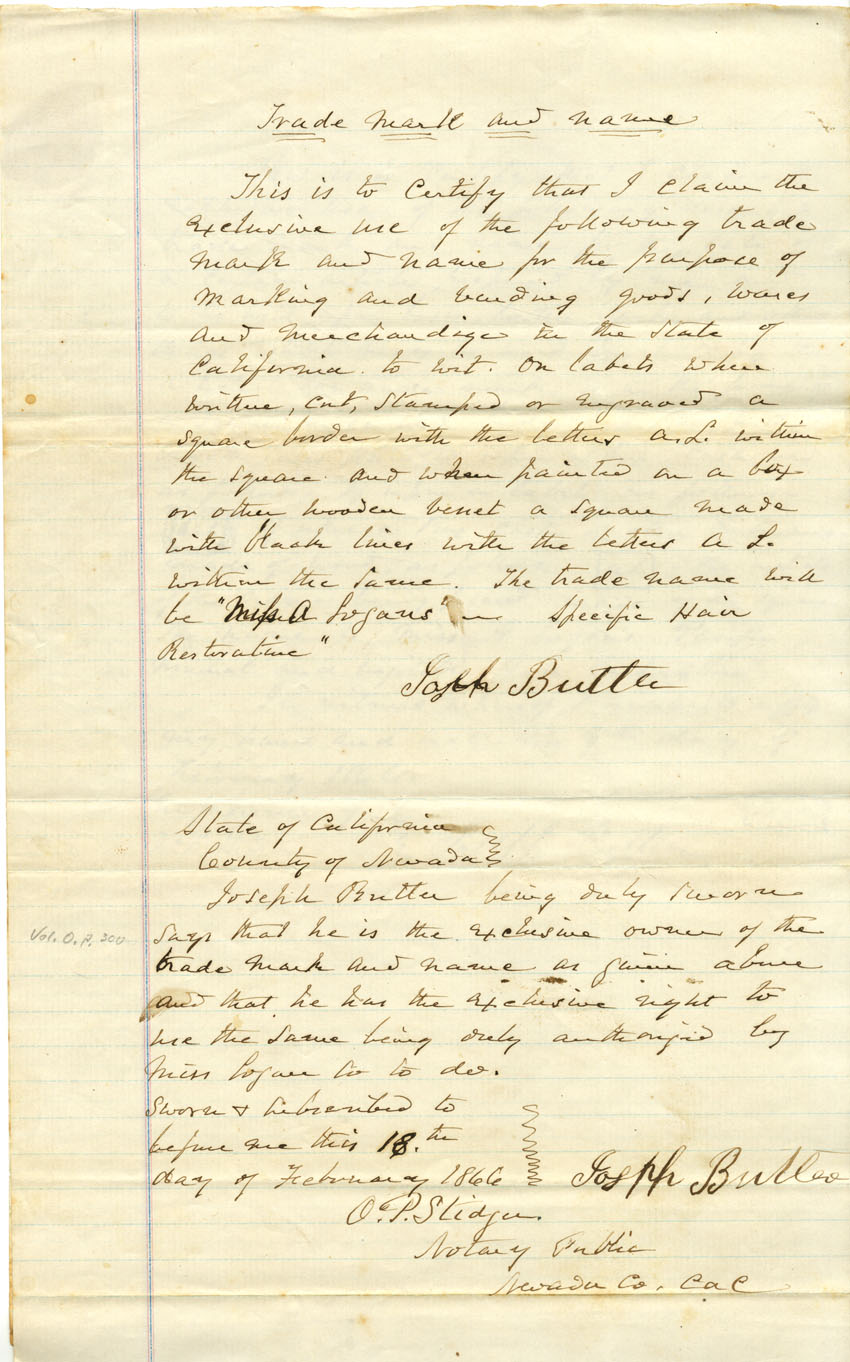 Trade Mark and name
This is to Certify that I claim the
exclusive use of the following trade
mark and name for the purpose of
marking and vending goods, wares
and merchandize in the State of
California. to wit. On labels when
written, cut, stamped or engraved a
square border with the letters A.L. within
the square. and when painted on a box
or other wooden vessel a square made
with black lines with the letters A L.
within the same. The trade name will
be "Miss A Logans" Specific Hair
Restorative"
Joseph Butler
State of California
County of Nevada
Joseph Butler being duly sworn
says that he is the exclusive owner of the
trade mark and name as given above
and that he has the exclusive right to
use the same being duly authorized by
Miss Logan so to do.
Vol. O. P. 300
Sworn & subscribed to
before me this 18.th
day of February 1866
Joseph Butler
O. P. Stidger.
Notary Public
Nevada Co. Cal